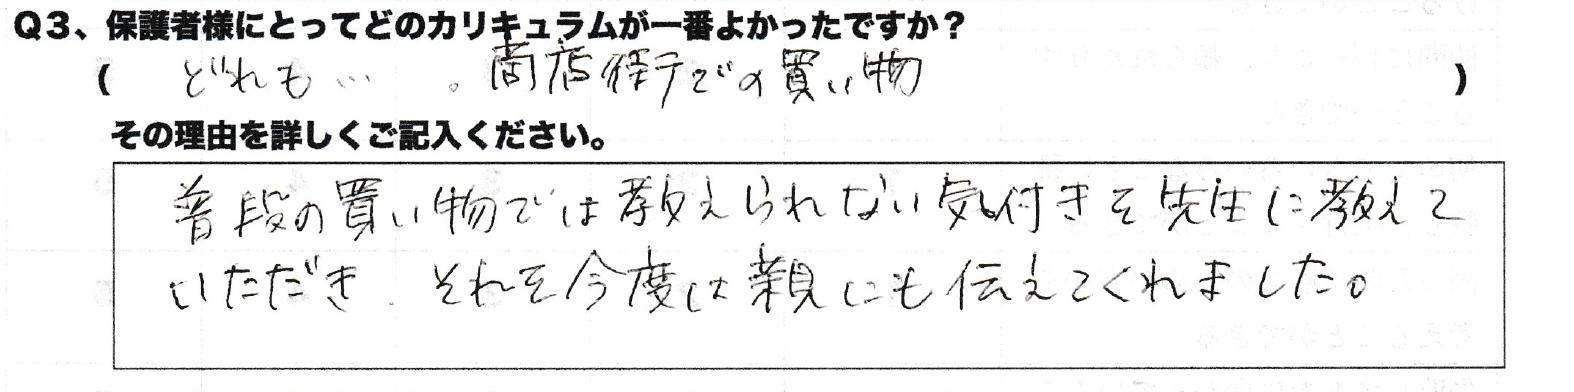 Q3、保護者様にとってどのカリキュラムが一番よかったですか？
( どれも… 。商店街での買い物 )
その理由を詳しくご記入ください。
普段の買い物では教えられない気付きを先生に教えて
いただき、それを今度は親にも伝えてくれました。